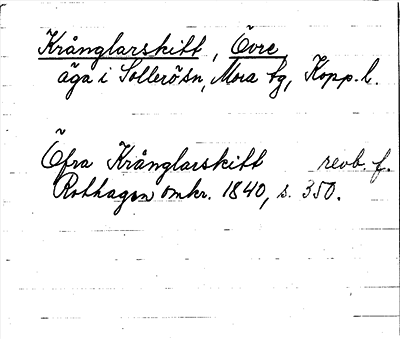 Krånglarskift, Övre,
äga i Sollerö sn, Mora tg, Kopp. l.
Öfra Krånglarskift revb. f.
Rothagen omkr. 1840, s. 350.